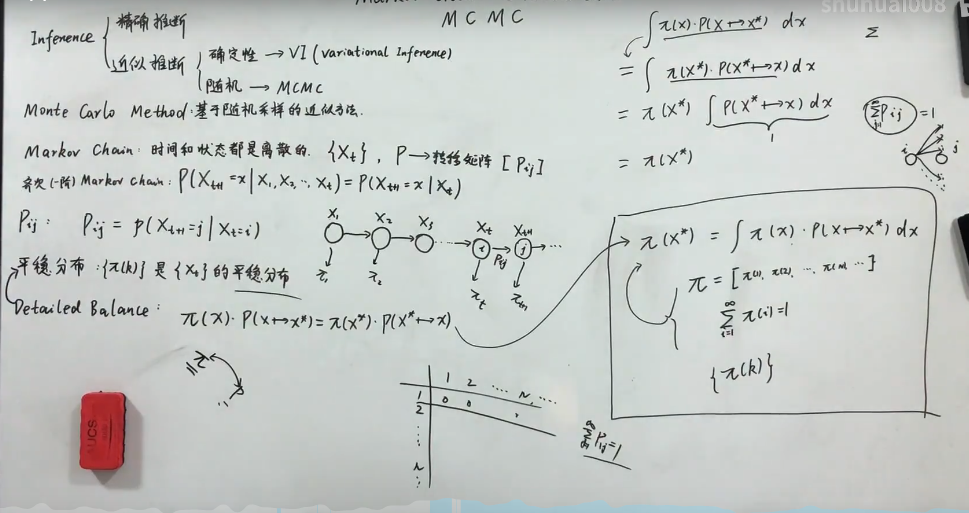 shuhuai008
MCMC
Inference { 精确推断
近似推断 { 确定性 → VI (variational Inference)
随机 → MCMC
Monte Carlo Method: 基于随机采样的近似方法.
Markov Chain: 时间和状态都是离散的. {X_t}, P → 转移矩阵 [P_ij]
齐次(一阶) Markov Chain: P(X_{t+1}=x | X_1, X_2, ..., X_t) = P(X_{t+1}=x | X_t)
P_ij: P_ij = p(X_{t+1}=j | X_t=i)
X_1 X_2 X_3 ...... X_t X_{t+1} ...
i P_ij j
π_1 π_2 π_t π_{t+1}
平稳分布: {π(k)} 是 {X_t} 的平稳分布
Detailed Balance:
π(x)·P(x↦x*) = π(x*)·P(x*↦x)
∫ π(x)·P(x↦x*) dx
= ∫ π(x*)·P(x*↦x) dx
= π(x*) ∫ P(x*↦x) dx
1
= π(x*)
Σ
Σ_{j=1}^{∞} P_ij = 1
i j
π(x*) = ∫ π(x)·P(x↦x*) dx
π = [π(1), π(2), ..., π(n), ...]
Σ_{i=1}^{∞} π(i) = 1
{π(k)}
1 2 ....
1 0 0
2
P_ij = 1
UCS